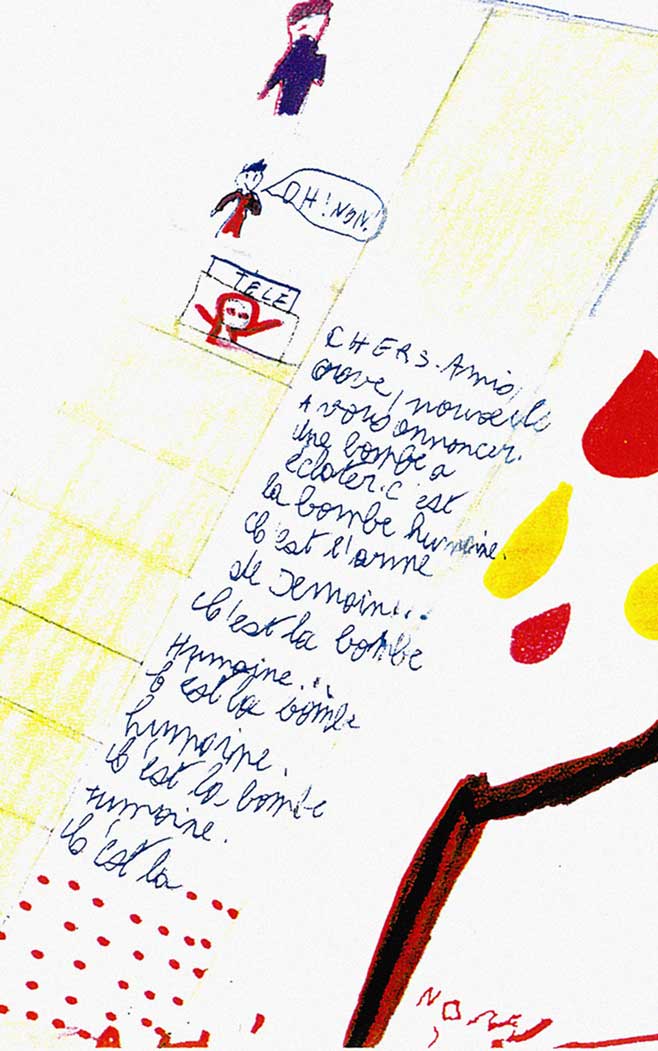 OH! NON!
TÉLÉ
CHERS. Amis
grave nouvelle
A vous annoncer.
Une bombe a
éclater. c'est
la bombe humaine.
C'est l'arme
de Demain...
C'est la bombe
Humaine...
C'est la bombe
humaine.
C'est la bombe
humaine.
C'est la